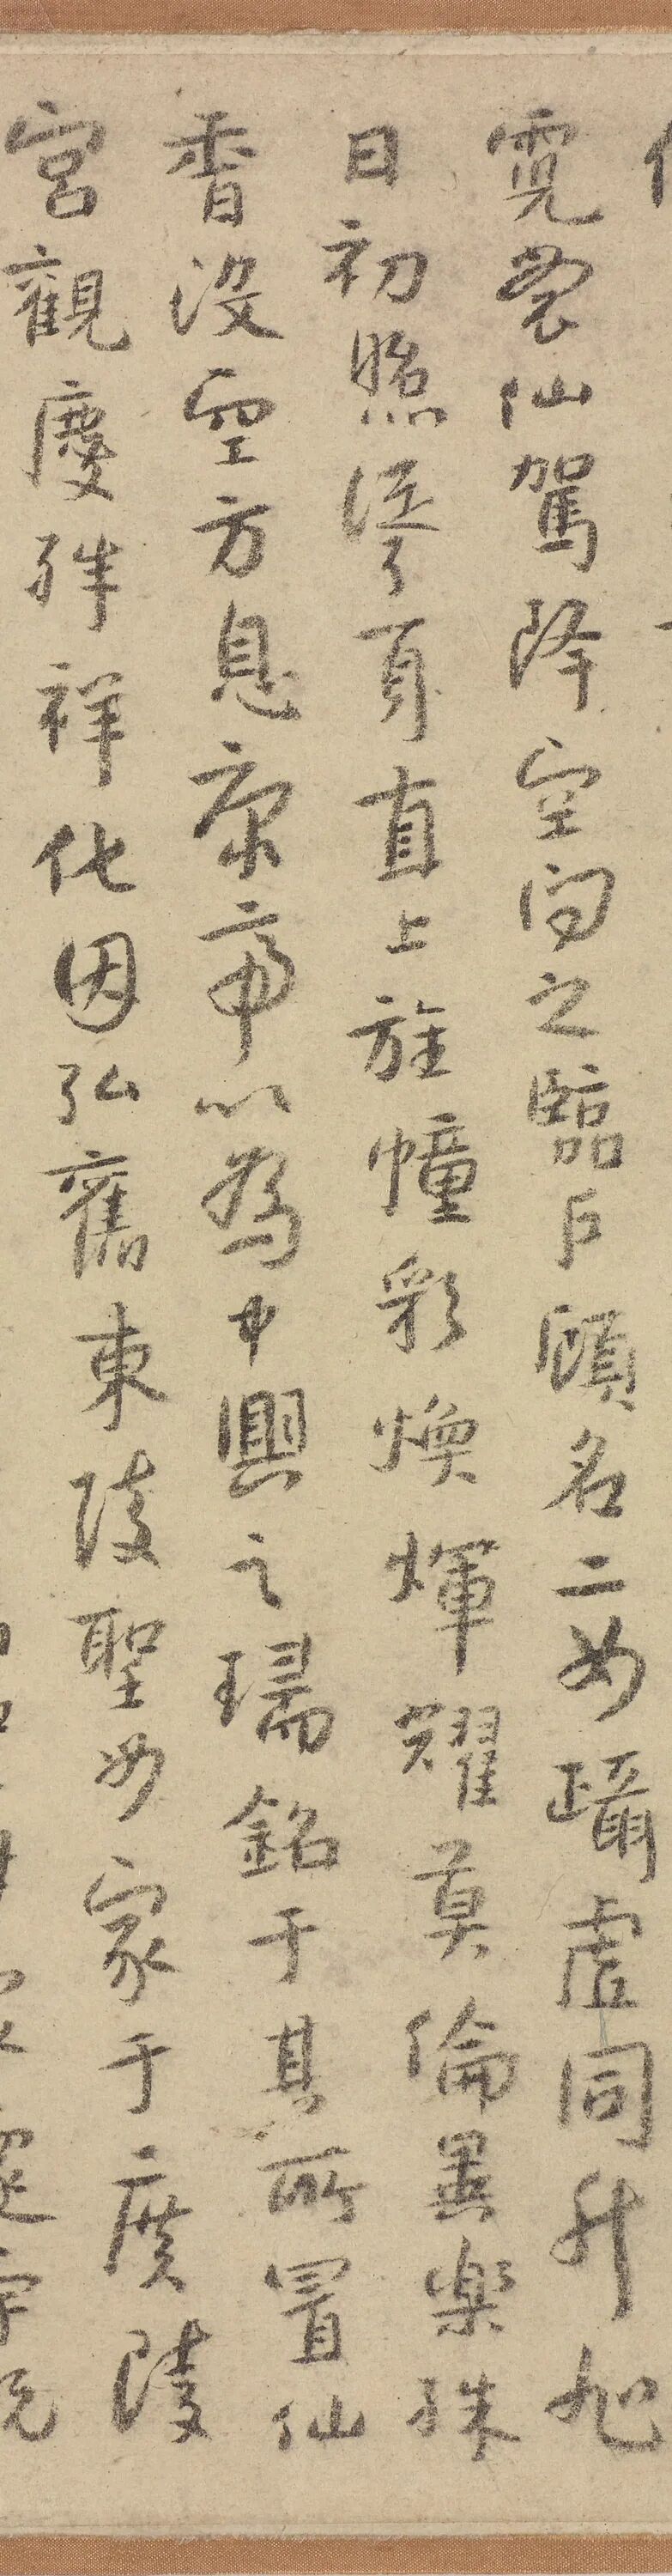 霓裳仙駕降空向之臨戶顧名二女躡虛同升旭
日初照聳身直上旌幢彩煥輝耀莫倫異樂殊
香沒空方息康帝以為中興之瑞銘于其所置仙
宮觀慶殊祥化因弘舊東陵聖母家于廣陵